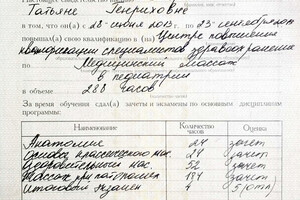 Татьяне
в том, что он(а) с 23 июля 2013 г. по 03 сентября
повышал(а) свою квалификацию в (на) Центре повышения
квалификации специалистов здравоохранения
по Медицинский массаж
в педиатрии
в объеме 288 часов
За время обучения сдал(а) зачеты и экзамены по основным дисциплинам
программы:
Наименование Количество часов Оценка
Анатомия 24 зачет
Основы классического мас. 24 зачет
Оздоровительный мас. 52 зачет
Массаж при патологии 184 зачет
Итоговый экзамен 4 5 (отл)